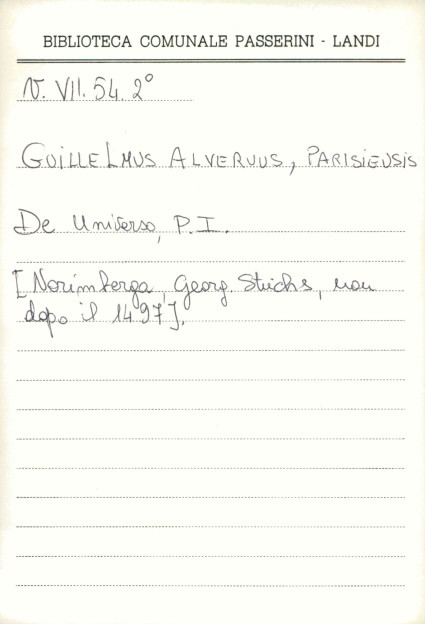 BIBLIOTECA COMUNALE PASSERINI - LANDI
V. VII. 54. 2°
GUILLELMUS ALVERNUS, PARISIENSIS
De Universo, P. I.
[Norimberga, Georg. Stuchs, non
dopo il 1497].